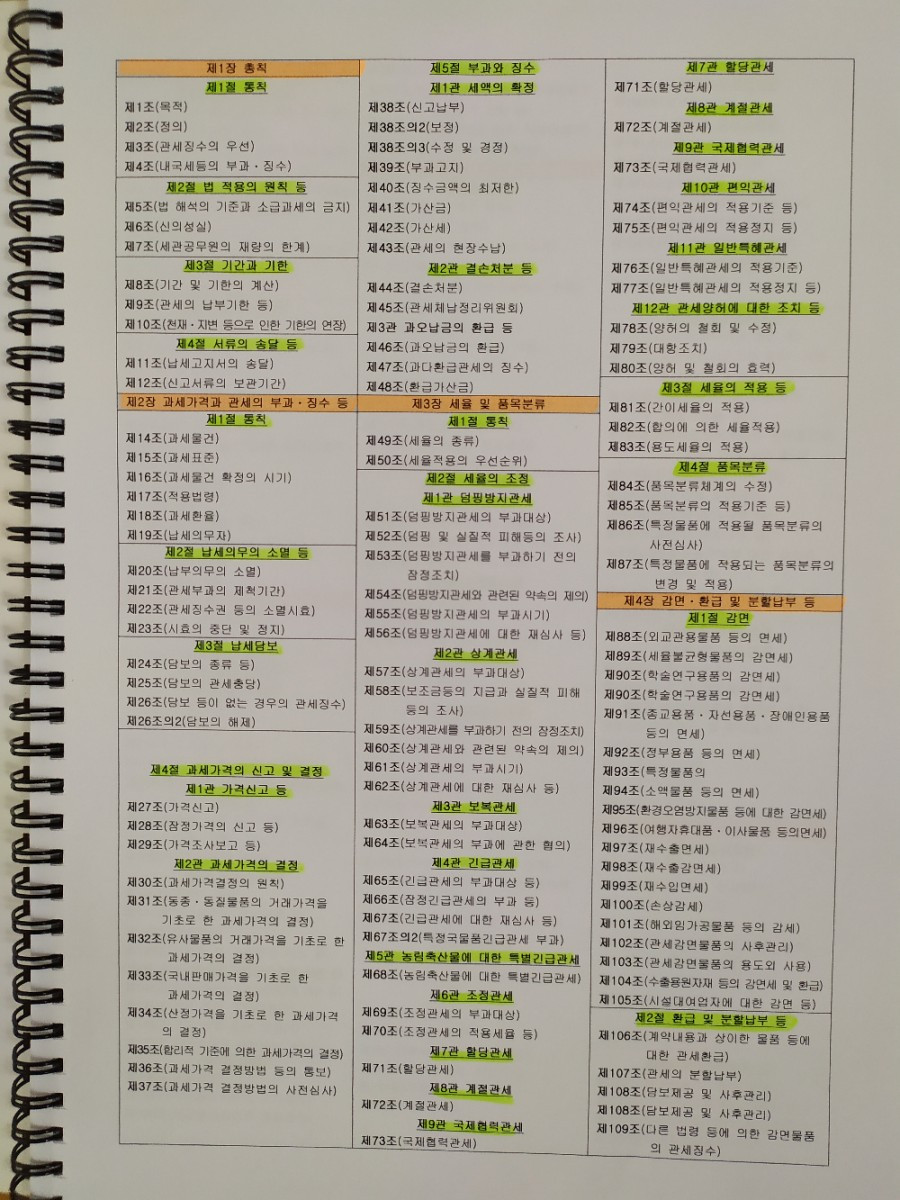 제1장 총칙
제1절 통칙
제1조(목적)
제2조(정의)
제3조(관세징수의 우선)
제4조(내국세등의 부과·징수)
제2절 법 적용의 원칙 등
제5조(법 해석의 기준과 소급과세의 금지)
제6조(신의성실)
제7조(세관공무원의 재량의 한계)
제3절 기간과 기한
제8조(기간 및 기한의 계산)
제9조(관세의 납부기한 등)
제10조(천재·지변 등으로 인한 기한의 연장)
제4절 서류의 송달 등
제11조(납세고지서의 송달)
제12조(신고서류의 보관기간)
제2장 과세가격과 관세의 부과·징수 등
제1절 통칙
제14조(과세물건)
제15조(과세표준)
제16조(과세물건 확정의 시기)
제17조(적용법령)
제18조(과세환율)
제19조(납세의무자)
제2절 납세의무의 소멸 등
제20조(납부의무의 소멸)
제21조(관세부과의 제척기간)
제22조(관세징수권 등의 소멸시효)
제23조(시효의 중단 및 정지)
제3절 납세담보
제24조(담보의 종류 등)
제25조(담보의 관세충당)
제26조(담보 등이 없는 경우의 관세징수)
제26조의2(담보의 해제)
제4절 과세가격의 신고 및 결정
제1관 가격신고 등
제27조(가격신고)
제28조(잠정가격의 신고 등)
제29조(가격조사보고 등)
제2관 과세가격의 결정
제30조(과세가격결정의 원칙)
제31조(동종·동질물품의 거래가격을
기초로 한 과세가격의 결정)
제32조(유사물품의 거래가격을 기초로 한
과세가격의 결정)
제33조(국내판매가격을 기초로 한
과세가격의 결정)
제34조(산정가격을 기초로 한 과세가격
의 결정)
제35조(합리적 기준에 의한 과세가격의 결정)
제36조(과세가격 결정방법 등의 통보)
제37조(과세가격 결정방법의 사전심사)
제5절 부과와 징수
제1관 세액의 확정
제38조(신고납부)
제38조의2(보정)
제38조의3(수정 및 경정)
제39조(부과고지)
제40조(징수금액의 최저한)
제41조(가산금)
제42조(가산세)
제43조(관세의 현장수납)
제2관 결손처분 등
제44조(결손처분)
제45조(관세체납정리위원회)
제3관 과오납금의 환급 등
제46조(과오납금의 환급)
제47조(과다환급관세의 징수)
제48조(환급가산금)
제3장 세율 및 품목분류
제1절 통칙
제49조(세율의 종류)
제50조(세율적용의 우선순위)
제2절 세율의 조정
제1관 덤핑방지관세
제51조(덤핑방지관세의 부과대상)
제52조(덤핑 및 실질적 피해등의 조사)
제53조(덤핑방지관세를 부과하기 전의
잠정조치)
제54조(덤핑방지관세와 관련된 약속의 제의)
제55조(덤핑방지관세의 부과시기)
제56조(덤핑방지관세에 대한 재심사 등)
제2관 상계관세
제57조(상계관세의 부과대상)
제58조(보조금등의 지급과 실질적 피해
등의 조사)
제59조(상계관세를 부과하기 전의 잠정조치)
제60조(상계관세와 관련된 약속의 제의)
제61조(상계관세의 부과시기)
제62조(상계관세에 대한 재심사 등)
제3관 보복관세
제63조(보복관세의 부과대상)
제64조(보복관세의 부과에 관한 협의)
제4관 긴급관세
제65조(긴급관세의 부과대상 등)
제66조(잠정긴급관세의 부과 등)
제67조(긴급관세에 대한 재심사 등)
제67조의2(특정국물품긴급관세 부과)
제5관 농림축산물에 대한 특별긴급관세
제68조(농림축산물에 대한 특별긴급관세)
제6관 조정관세
제69조(조정관세의 부과대상)
제70조(조정관세의 적용세율 등)
제7관 할당관세
제71조(할당관세)
제8관 계절관세
제72조(계절관세)
제9관 국제협력관세
제73조(국제협력관세)
제7관 할당관세
제71조(할당관세)
제8관 계절관세
제72조(계절관세)
제9관 국제협력관세
제73조(국제협력관세)
제10관 편익관세
제74조(편익관세의 적용기준 등)
제75조(편익관세의 적용정지 등)
제11관 일반특혜관세
제76조(일반특혜관세의 적용기준)
제77조(일반특혜관세의 적용정지 등)
제12관 관세양허에 대한 조치 등
제78조(양허의 철회 및 수정)
제79조(대항조치)
제80조(양허 및 철회의 효력)
제3절 세율의 적용 등
제81조(간이세율의 적용)
제82조(합의에 의한 세율적용)
제83조(용도세율의 적용)
제4절 품목분류
제84조(품목분류체계의 수정)
제85조(품목분류의 적용기준 등)
제86조(특정물품에 적용될 품목분류의
사전심사)
제87조(특정물품에 적용되는 품목분류의
변경 및 적용)
제4장 감면·환급 및 분할납부 등
제1절 감면
제88조(외교관용물품 등의 면세)
제89조(세율불균형물품의 감면세)
제90조(학술연구용품의 감면세)
제90조(학술연구용품의 감면세)
제91조(종교용품·자선용품·장애인용품
등의 면세)
제92조(정부용품 등의 면세)
제93조(특정물품의
제94조(소액물품 등의 면세)
제95조(환경오염방지물품 등에 대한 감면세)
제96조(여행자휴대품·이사물품 등의면세)
제97조(재수출면세)
제98조(재수출감면세)
제99조(재수입면세)
제100조(손상감세)
제101조(해외임가공물품 등의 감세)
제102조(관세감면물품의 사후관리)
제103조(관세감면물품의 용도외 사용)
제104조(수출용원자재 등의 감면세 및 환급)
제105조(시설대여업자에 대한 감면 등)
제2절 환급 및 분할납부 등
제106조(계약내용과 상이한 물품 등에
대한 관세환급)
제107조(관세의 분할납부)
제108조(담보제공 및 사후관리)
제108조(담보제공 및 사후관리)
제109조(다른 법령 등에 의한 감면물품
의 관세징수)